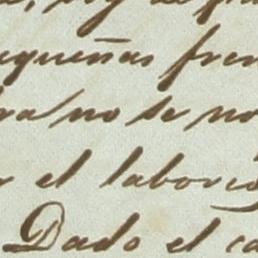 pequeñas fren
ra no se no
r el laborio
Dado el ca